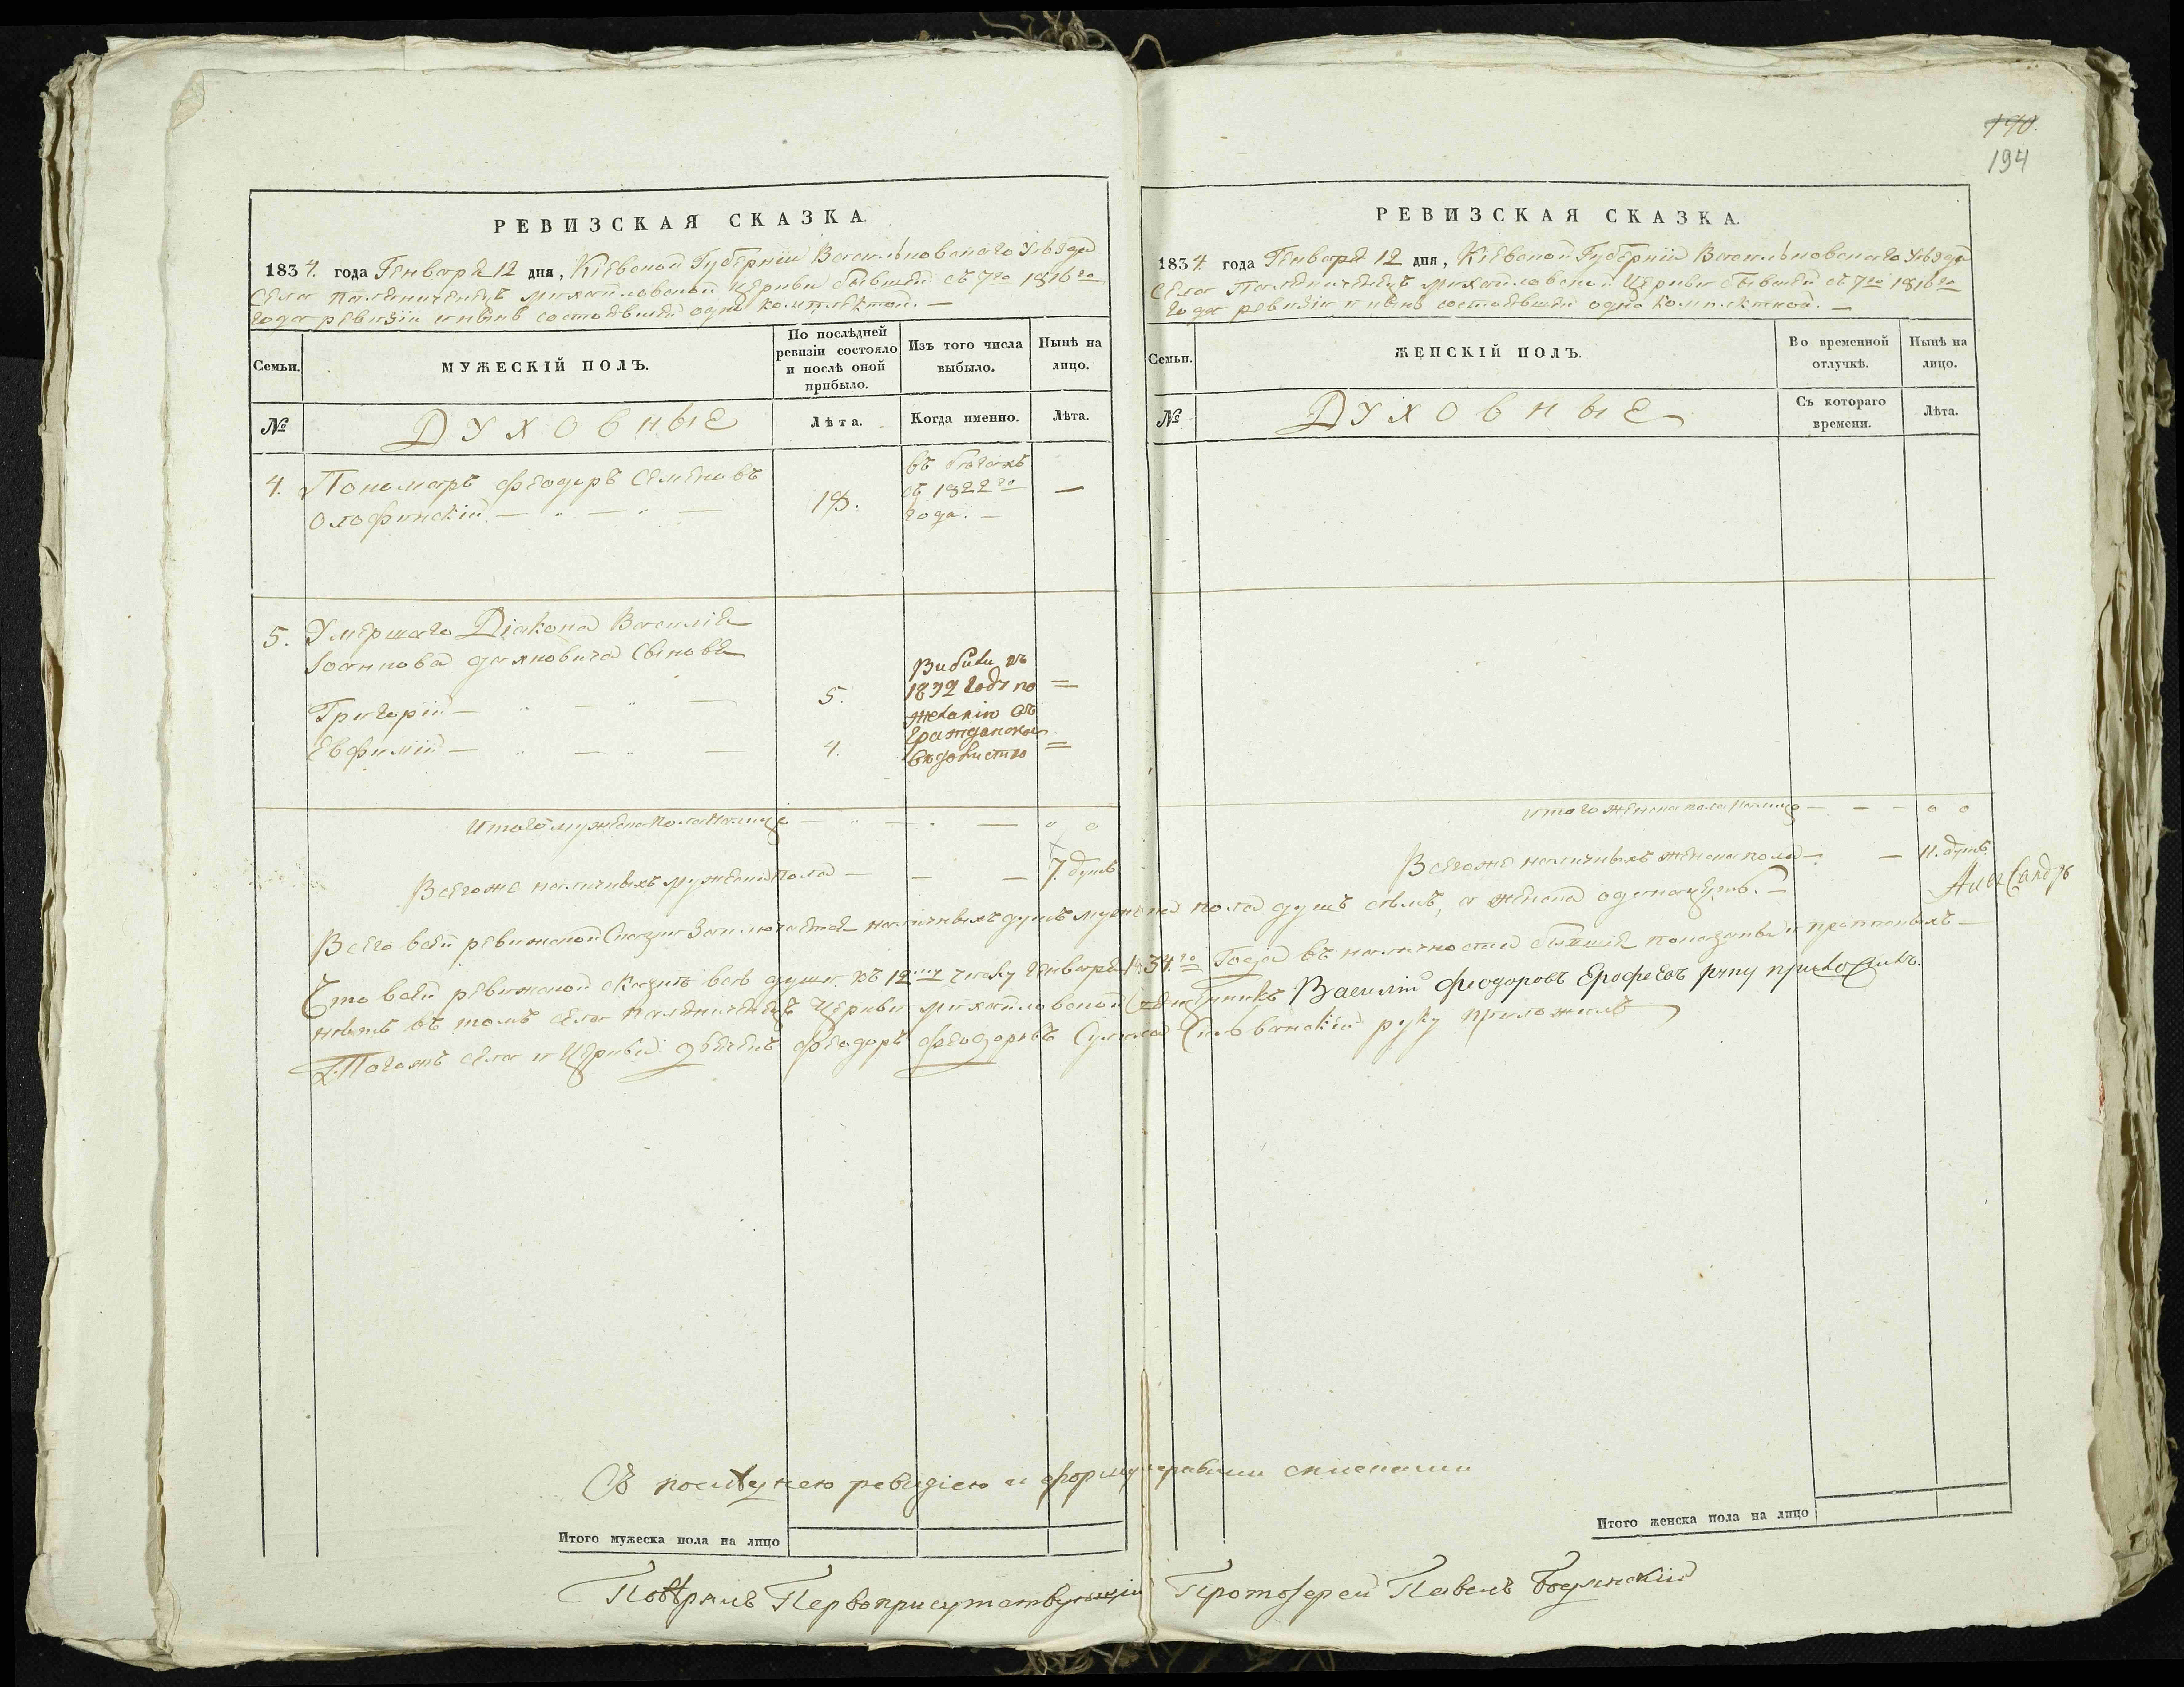 190.
194
РЕВИЗСКАЯ СКАЗКА.
1834. года Генваря 12 дня, Кіевской Губерніи Васильковскаго Уѣзда
Села Паляниченецъ Михайловской Церкви бывшей съ 7го 1816го
года ревизіи и нынѣ состоявшей одно комплектной. —
Семьи.
МУЖЕСКІЙ ПОЛЪ.
По послѣдней ревизіи состояло и послѣ оной прибыло.
Изъ того числа выбыло.
Нынѣ на лицо.
№
Духовные
Лѣта.
Когда именно.
Лѣта.
4. Пономарь Феодоръ Семеновъ
Олофинскій — 18. въ бѣгахъ съ 1822го года. — —
5. Умершаго Діакона Василія
Іоаннова Дахновича Сынове
Григорій — 5. Выбыли въ 1832 году по желанію въ гражданское вѣдомство =
Евфимій — 4. =
Итого мужеска пола на лицо — 0 0
Всего же наличныхъ мужеска пола — 7. душъ
РЕВИЗСКАЯ СКАЗКА.
1834. года Генваря 12 дня, Кіевской Губерніи Васильковскаго Уѣзда
Села Паляниченецъ Михайловской Церкви бывшей съ 7го 1816го
года ревизіи и нынѣ состоявшей одно комплектной. —
Семьи.
ЖЕНСКІЙ ПОЛЪ.
Во временной отлучкѣ.
Нынѣ на лицо.
№
Духовные
Съ котораго времени.
Лѣта.
Итого женска пола на лицо — 0 0
Всего же наличныхъ женска пола — 11. душъ
Всего въ сей ревижской Сказки заключается наличныхъ душъ мужеска пола душъ семь, а женска одинацать. —
Что въ сей ревижской сказкѣ всѣ души къ 12му числу Генваря 1834го Года въ наличности бывшія показаны и прописныхъ —
нѣтъ въ томъ села Паляниченецъ Церкви Михайловской Священникъ Василій Феодоровъ Ерофеевъ руку приложилъ.
Тогожъ села и Церкви дьячекъ Феодоръ Феодоровъ руку приложилъ
Съ послѣднею ревизіею и формулярными списками
Итого мужеска пола на лицо
Итого женска пола на лицо
Повѣрялъ Первоприсутствующій Протоіерей Павелъ